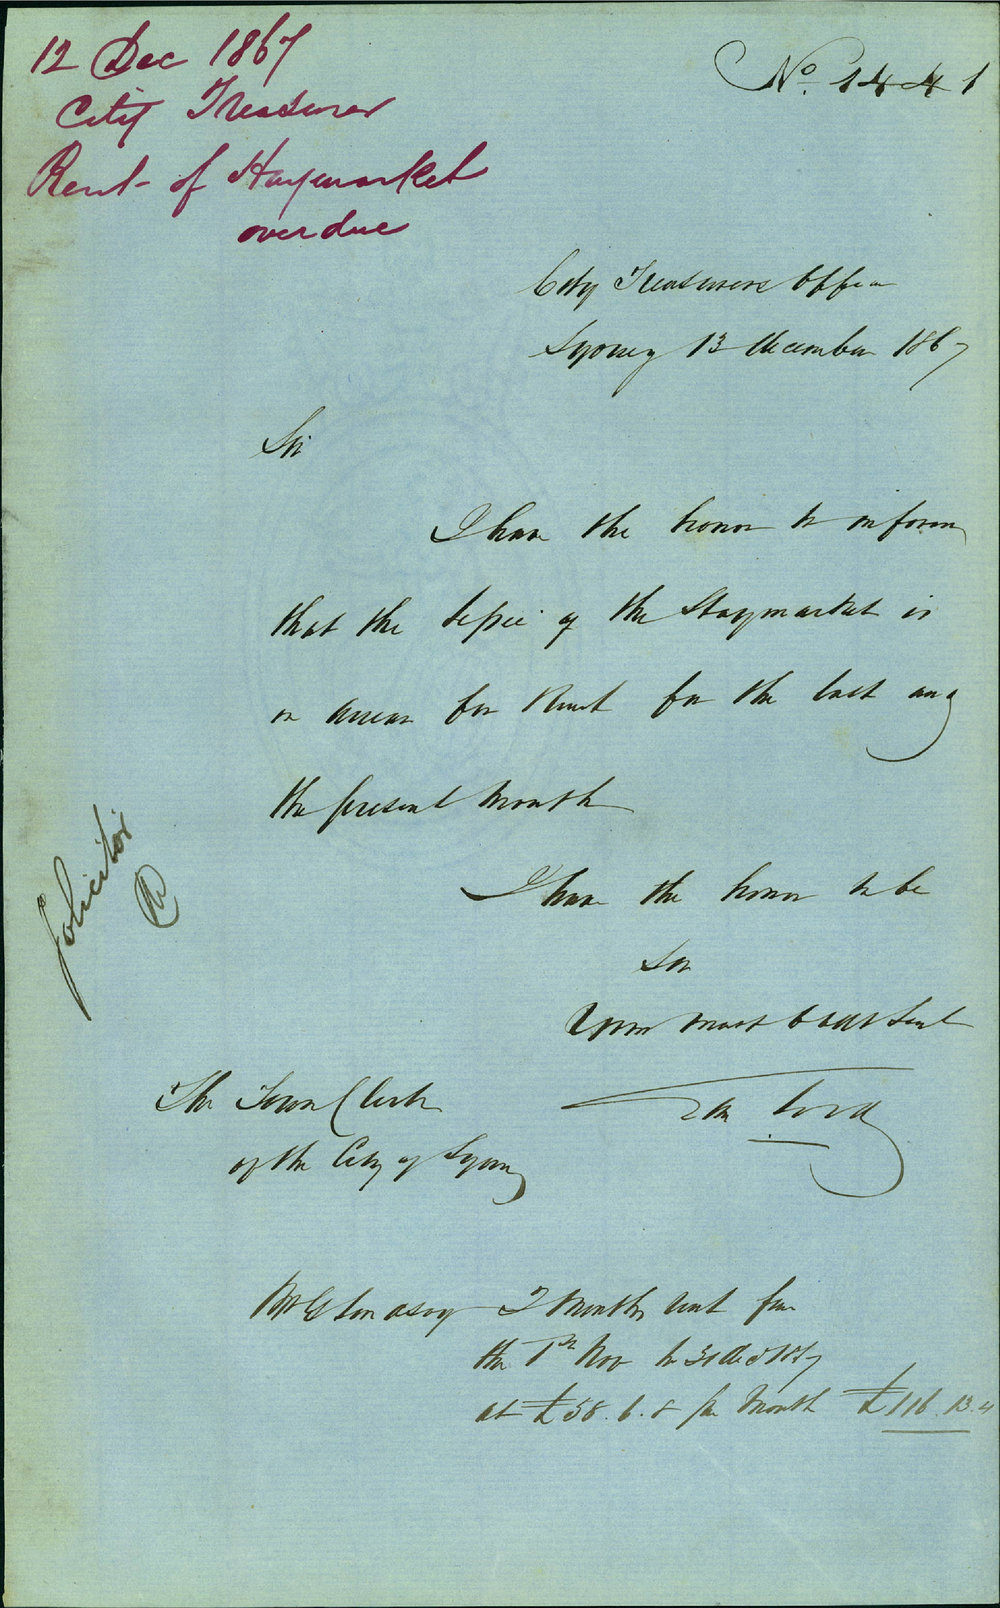 12 Dec 1867
City Treasurer
Rent of Haymarket
overdue
No. 1441
City Treasurers Office
Sydney 13 december 1867
Sir
I have the honor to inform
that the Lessee of the Haymarket is
in arrear for Rent for the last and
the present Month
I have the honor to be
Sir
Your most obedt Servt
The Town Clerk
of the City of Sydney
Solicitor
2 Months rent from
the 1st Nov to 31 Dec 1867
at £58.6.8 per Month £116.13.4